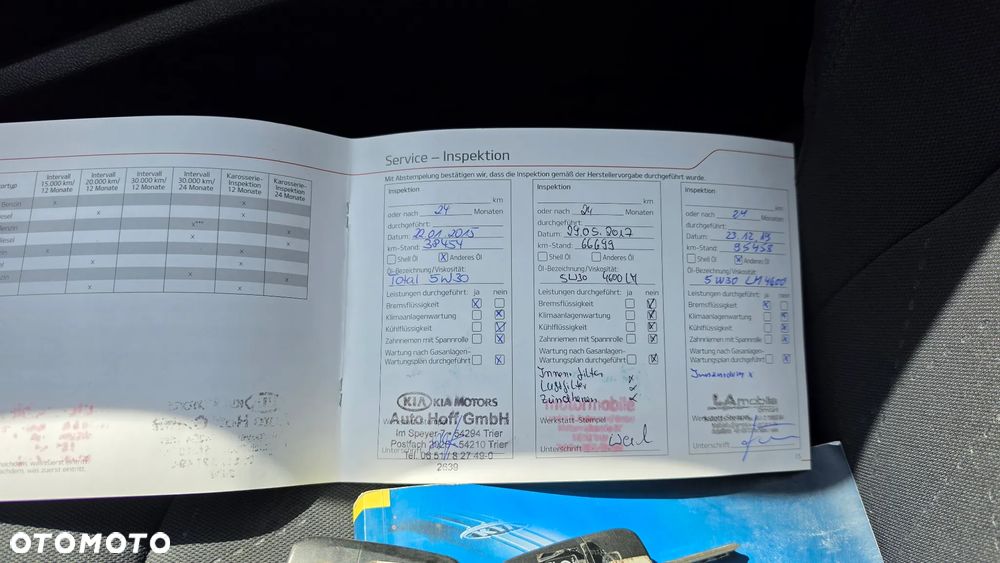 artyp
Intervall 15.000 km/ 12 Monate
Intervall 20.000 km/ 12 Monate
Intervall 30.000 km/ 12 Monate
Intervall 30.000 km/ 24 Monate
Karosserie- Inspektion 12 Monate
Karosserie- Inspektion 24 Monate
Benzin x x
esel x x
enzin x*** x
iesel x x
zin x x
el x x
nzin x x
x x
Service – Inspektion
Mit Abstempelung bestätigen wir, dass die Inspektion gemäß der Herstellervorgabe durchgeführt wurde.
Inspektion
km
oder nach 24 Monaten
durchgeführt:
Datum: 22.01.2015
km-Stand: 38454
Shell Öl x Anderes Öl
Öl-Bezeichnung/Viskosität:
Total 5W30
Leistungen durchgeführt: ja nein
Bremsflüssigkeit x
Klimaanlagenwartung x
Kühlflüssigkeit
Zahnriemen mit Spannrolle x
Wartung nach Gasanlagen-
Wartungsplan durchgeführt x
KIA KIA MOTORS
Auto Hoff GmbH
Werkstatt-Stempel
Im Speyer 7 - 54294 Trier
Postfach 54210 Trier
Tel. 06 51 / 8 27 49-0
Unterschrift
2639
Inspektion
km
oder nach 24 Monaten
durchgeführt:
Datum: 29.05.2017
km-Stand: 66699
Shell Öl Anderes Öl
Öl-Bezeichnung/Viskosität:
5W30 4600 LM
Leistungen durchgeführt: ja nein
Bremsflüssigkeit
Klimaanlagenwartung x
Kühlflüssigkeit x
Zahnriemen mit Spannrolle x
Wartung nach Gasanlagen-
Wartungsplan durchgeführt x
Innenfilter x
Luftfilter x
Zündkerzen x
motormobile
Werkstatt-Stempel
Unterschrift
Inspektion
km
oder nach 24 Monaten
durchgeführt:
Datum: 23.12.19
km-Stand: 95458
Shell Öl x Anderes Öl
Öl-Bezeichnung/Viskosität:
5W30 LM 4600
Leistungen durchgeführt: ja nein
Bremsflüssigkeit x
Klimaanlagenwartung x
Kühlflüssigkeit x
Zahnriemen mit Spannrolle x
Wartung nach Gasanlagen-
Wartungsplan durchgeführt x
LA mobile
Werkstatt-Stempel
Unterschrift
15
KIA
OTOMOTO